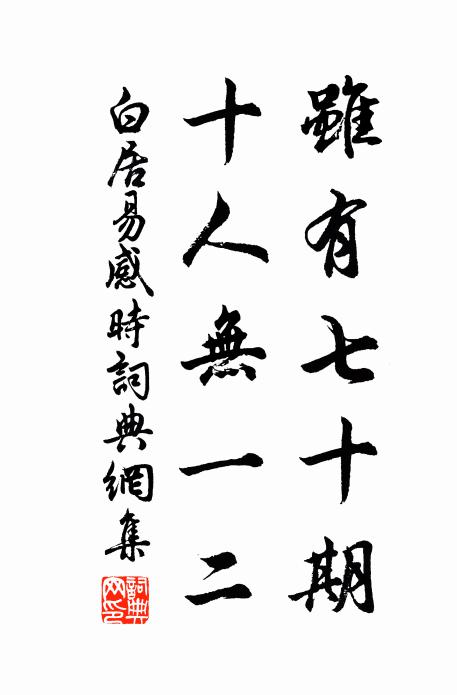 雖有七十期
十人無一二
白居易感時詞典網集
詞典网印